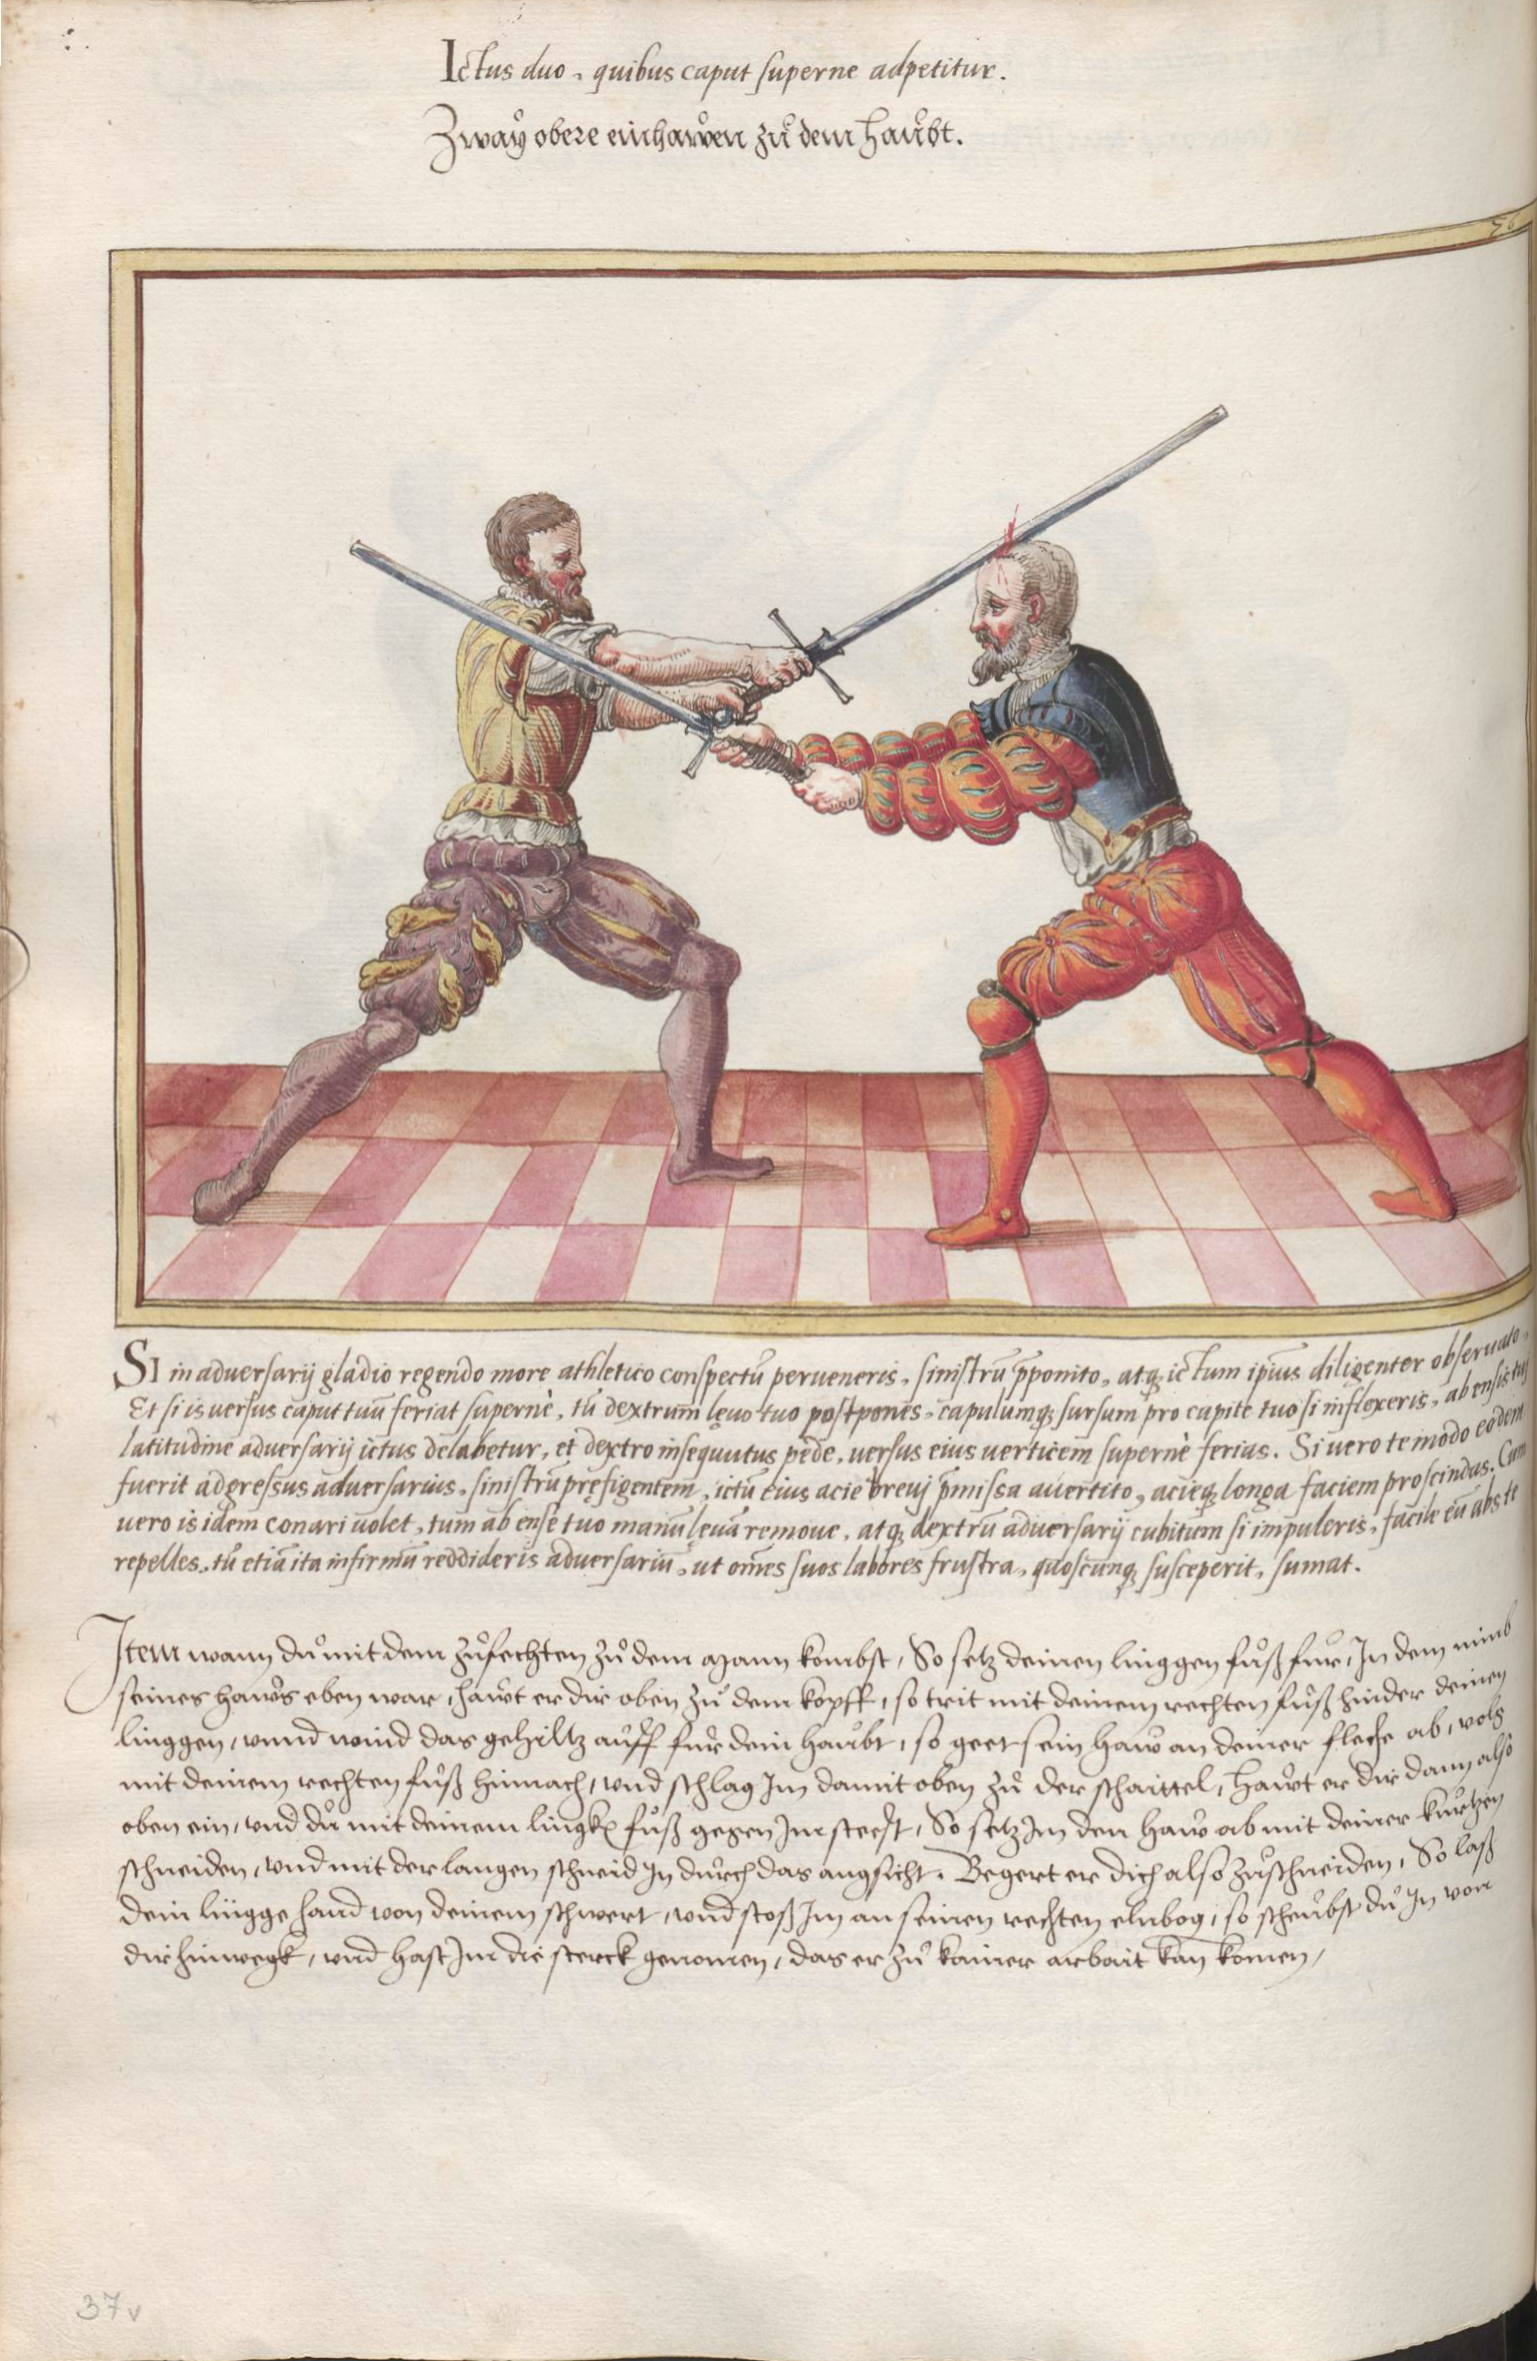 Ictus duo, quibus caput superne adpetitur.
Zwaÿ obere einhawen zů dem haubt.
56
SI in adversarij gladio regendo more athletico conspectū perueneris, sinistrū p̄ponito, atq; ictum ipius diligenter obseruato,
Et si is versus caput tuū feriat supernè, tū dextrum lęuo tuo postpones, capulumq; sursum pro capite tuo si inflexeris, ab ensis tui
latitudine adversarij ictus delabetur, et dextro insequutus pede, versus eius verticem supernè ferias. Si vero te modo eodem
fuerit adgressus aduersarius, sinistrū pręfigentem, ictū eius acie brevj p̄missa auertito, acieq; longa faciem proscindas. Cum
vero is idem conari volet, tum ab ense tuo manū lęuā remoue, atq; dextrū aduersarij cubitum si impuleris, facile eū abs te
repelles, tū etiā ita infirmū reddideris adversariū, ut om̄es suos labores frustra, quoscunq; susceperit, sumat.
Item wann dů mit dem zůfechten zů dem Mann kombst, So setz deinen linggen fůß fur, In dem nimb
seines haws eben war, hawt er dir oben zů dem kopff, so trit mit deinem rechten fůß hinder deinen
linggen, vnnd wind das gehiltz auff fur dein haubt, so geet sein haw an deiner fleche ab, volg
mit deinem rechten fůß hinnach, vnd schlag Im damit oben zů der schaittel, Hawt er dir dann also
oben ein, vnd dů mit deinem lingkn fůß gegen Im steest, So setz Im den haw ab mit deiner kurtzen
schneiden, vnd mit der langen schneid In durch das angsicht. Begert er dich also zůschneiden, So laß
dein lingge hand von deinem schwert, vnd stoß Im an seinen rechten elnbog, so scheubst dů In von
dir hinwegk, vnd hast Im die sterck genomen, das er zů kainer arbait kan komen,
37v